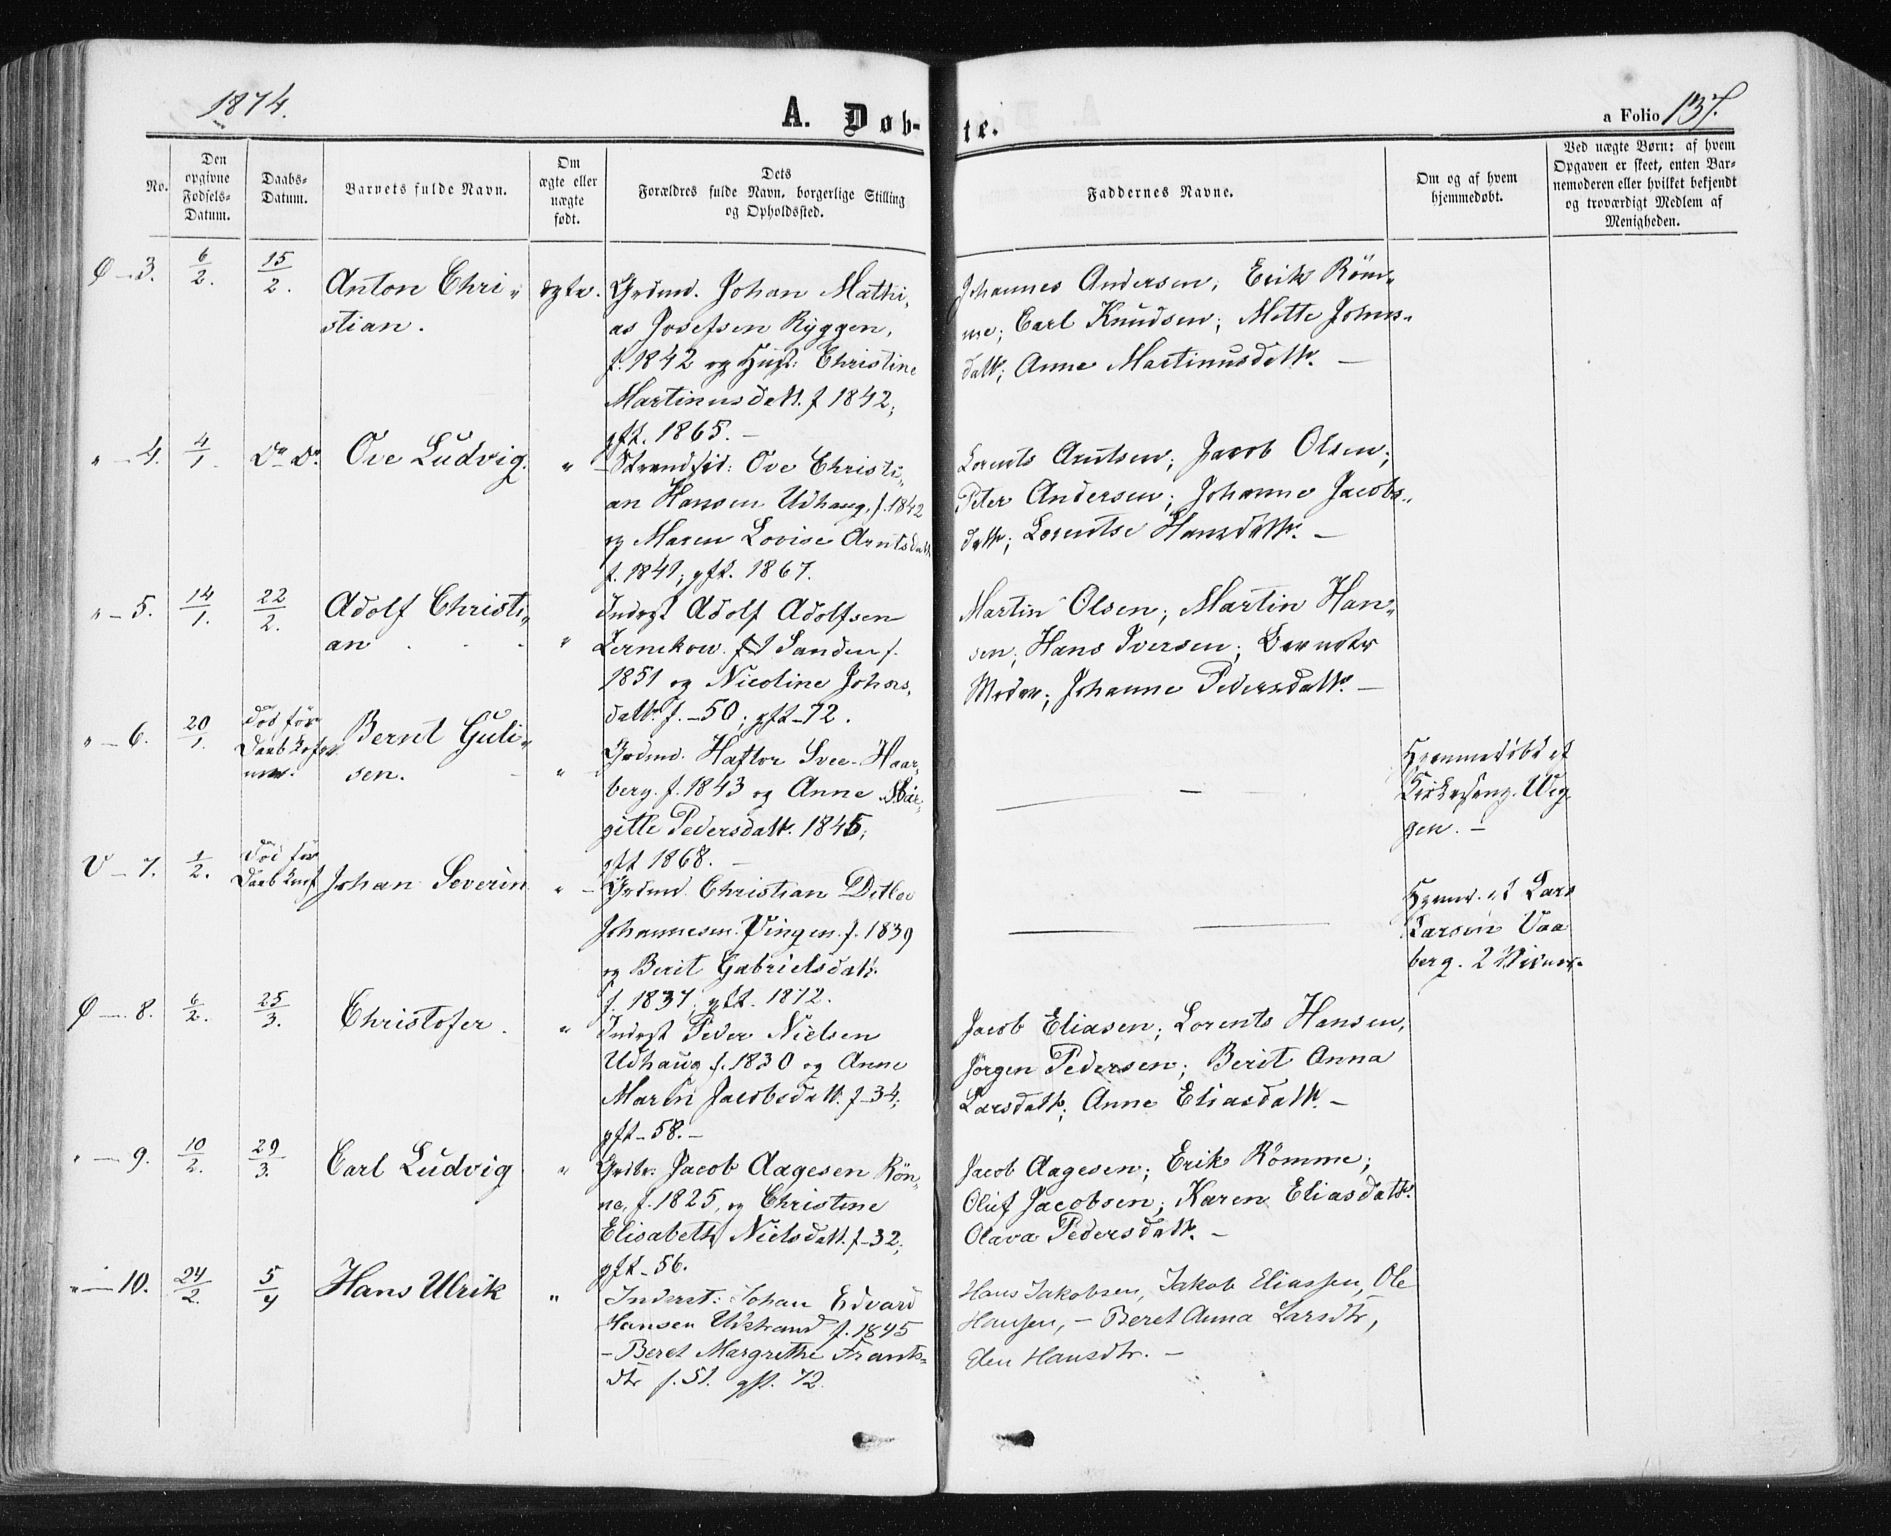 1874.
A. Døb-
te.
a Folio 137.
No.
Den
opgivne
Fødsels-
Datum.
Daabs-
Datum.
Barnets fulde Navn.
Om
ægte eller
uægte
født.
Dets
Forældres fulde Navn, borgerlige Stilling
og Opholdssted.
Faddernes Navne.
Om og af hvem
hjemmedøbt.
Ved uægte Børn: af hvem
Opgaven er skeet, enten Bar-
nemoderen eller hvilket bekjendt
og troværdigt Medlem af
Menigheden.
Ø - 3. 6/2. 15/2. Anton Chri-
stian.
ægte.
Grdmd. Johan Mathi-
as Josefsen Ryggen,
f. 1842 og Hust: Christine
Martinusdatt. f 1842,
gft. 1865. -
Johannes Andersen; Erik Röm-
me; Carl Knudsen; Mette Johns-
datt; Anne Martinusdatt. -
" - 4. 4/1. Do Do. Ove Ludvig. "
Strandsid: Ove Christi-
an Hansen Udhaug, f. 1842
og Maren Lovise Arntsdatt
f. 1841; gft. 1867.
Lorents Arntsen; Jacob Olsen;
Peter Andersen; Johanne Jacobs-
datt; Lorentse Hansdatt. -
" - 5. 14/1. 22/2. Adolf Christi-
an "
Inderst Adolf Adolfsen
Lernekow Sanden f.
1851 og Nicoline Johns-
datt. f. -50; gft -72.
Martin Olsen; Martin Han-
sen; Hans Iversen; Barnets
Moder; Johanne Pedersdatt. -
" - 6. 20/1. Död för
Daab
Bernt Guli-
sen. "
Grdmd. Haftor Svee-Haar-
berg. f. 1843 og Anne Mar-
gitte Pedersdatt. 1845;
gft 1868. -
Hjemmedöbt af
Kirkesang. Vig
gen. -
V - 7. 1/2. Död för
Daab
Johan Severin "
Grdmd. Christian Detlev
Johannesen Vingen. f. 1839
og Berit Gabrielsdatt.
f. 1837. gft. 1872.
Hjemd. af Lars
Larsen Vaa
berg. 2 Vidner.
Ø - 8. 6/2. 25/3. Christofer. "
Inderst Peder Nielsen
Udhaug f. 1830 og Anne
Marta Jacobsdatt. f -34;
gft -58. -
Jacob Eliasen; Lorents Hansen,
Jörgen Pedersen; Berit Anna
Larsdatt; Anne Eliasdatt. -
" - 9. 10/2. 29/3. Carl Ludvig "
Grdbr: Jacob Aagesen Rön-
ne, f. 1825, og Christine
Elisabeth Nielsdatt. f -32;
gft -56.
Jacob Aagesen; Erik Römme;
Oluf Jacobsen; Karen Eliasdatt.
Olava Pedersdatt. -
" - 10. 24/2. 5/4 Hans Ulrik "
Inderst: Johan Edvard
Hansen Udstrand f. 1845
- Beret Margrethe Frants-
dtr f. 51. gft. 72.
Hans Jakobsen, Jakob Eliassen, Ole
Hansen, - Beret Anna Larsdtr,
Elen Hansdtr. -